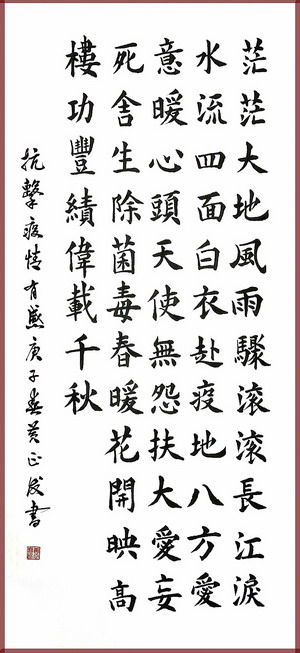 茫茫大地風雨驟滾滾長江淚
水流四面白衣赴疫地八方愛
意暖心頭天使無怨扶大愛妄
死舍生除菌毒春暖花開映高
樓功豐績偉載千秋
抗擊疫情有感庚子春黃正書